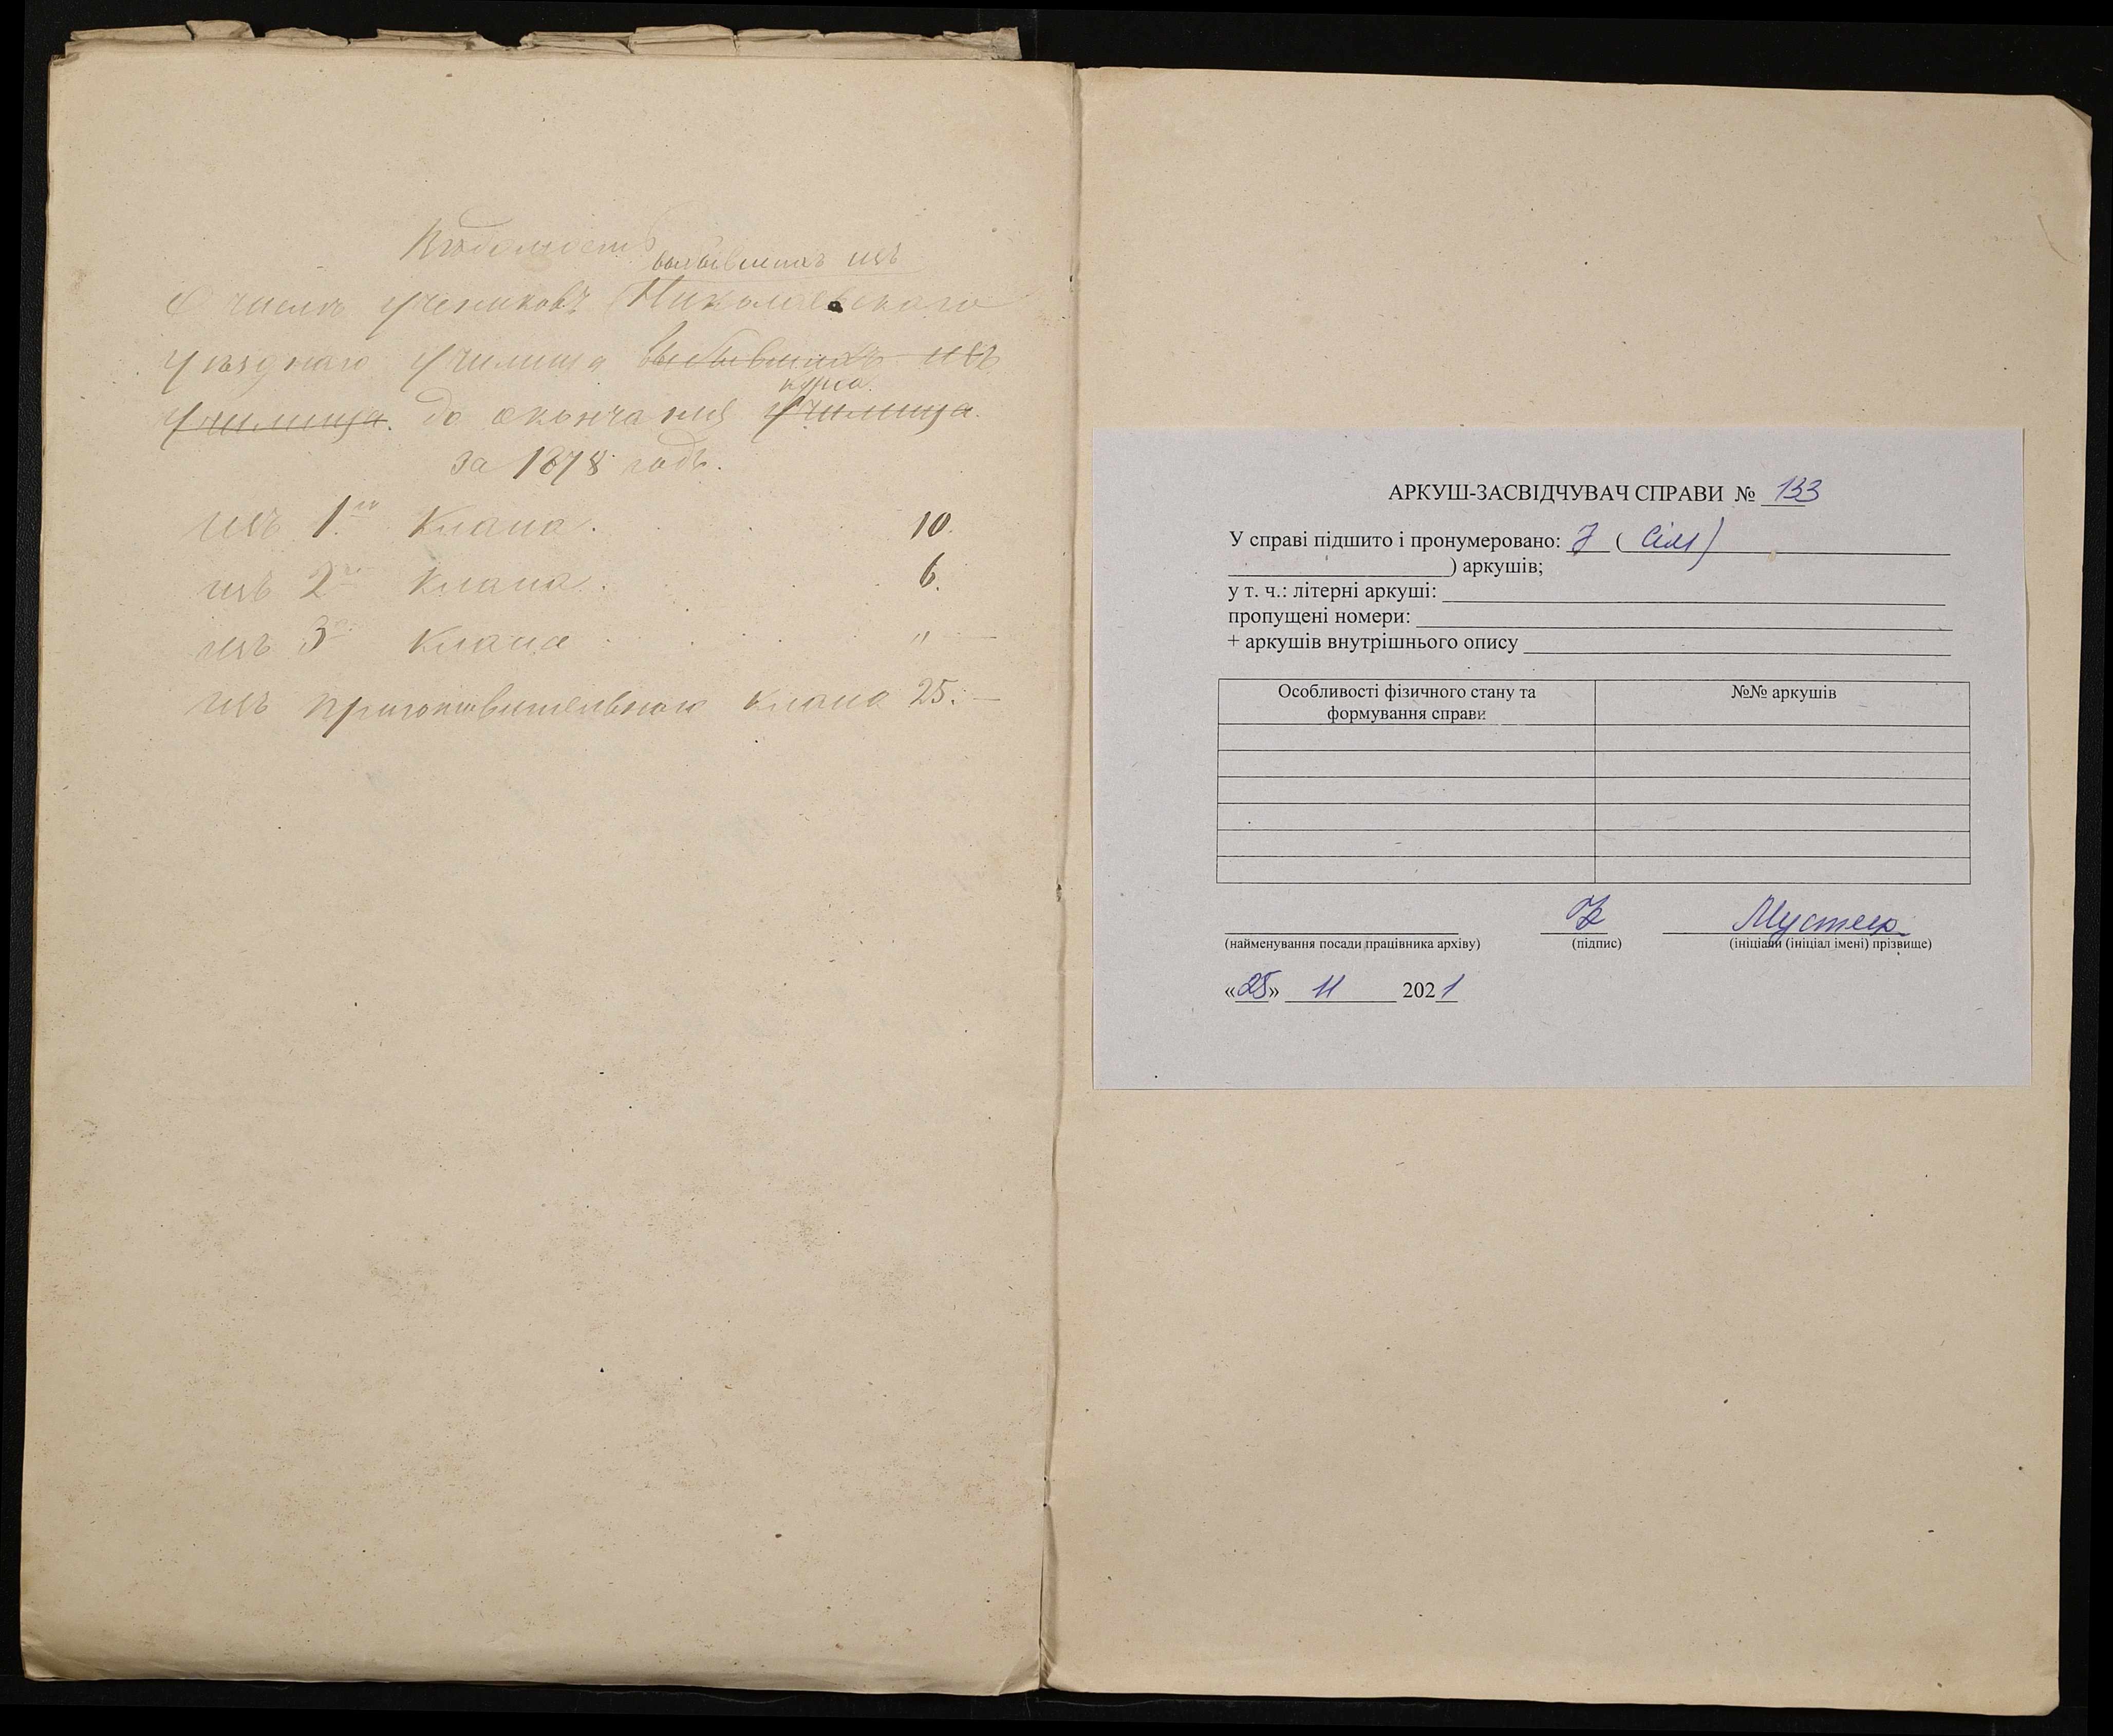 Вѣдомость
выбывшихъ изъ
О числѣ учениковъ Николаевскаго
уѣзднаго училища выбывшихъ изъ
курса
училища. до окончания училища.
за 1878 годъ.
изъ 1го Класа . . . 10.
изъ 2го Класа . . . 6.
изъ 3го Класа . . . „ —
изъ приготовительнаго класа 25. —
АРКУШ-ЗАСВІДЧУВАЧ СПРАВИ № 133
У справі підшито і пронумеровано: 7 ( сім )
) аркушів;
у т. ч.: літерні аркуші:
пропущені номери:
+ аркушів внутрішнього опису
Особливості фізичного стану та формування справи №№ аркушів
(найменування посади працівника архіву) (підпис) (ініціали (ініціал імені) прізвище)
«25» 11 2021